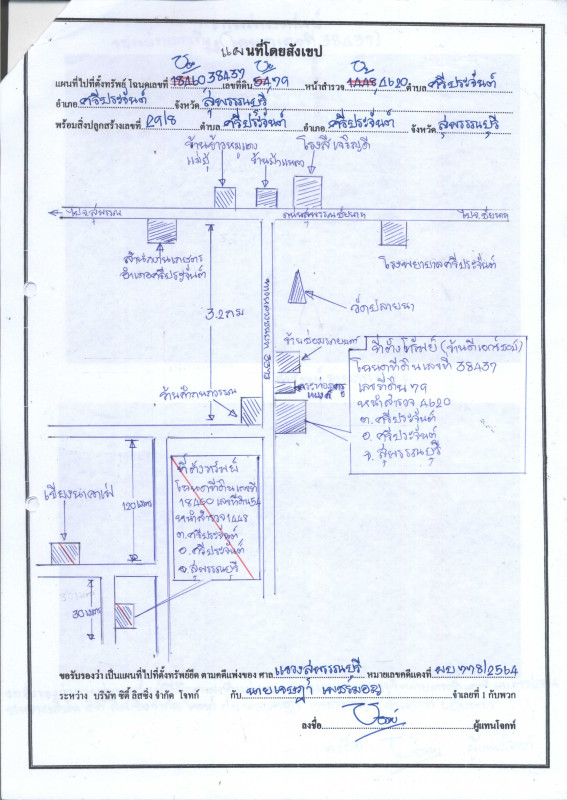 แผนที่โดยสังเขป
แผนที่ไปที่ตั้งทรัพย์ โฉนดเลขที่ 18460 38437 เลขที่ดิน 54 79 หน้าสำรวจ 1448 4620 ตำบล ศรีประจันต์
อำเภอ ศรีประจันต์ จังหวัด สุพรรณบุรี
พร้อมสิ่งปลูกสร้างเลขที่ 29/8 ตำบล ศรีประจันต์ อำเภอ ศรีประจันต์ จังหวัด สุพรรณบุรี
ร้านข้าวหมูแดง
โรงสีเจริญดี
ไป จ.สุพรรณ
ถนนสุพรรณชัยนาท
ไป จ.ชัยนาท
สำนักงานเกษตร
อำเภอศรีประจันต์
โรงพยาบาลศรีประจันต์
3.2 กม
วัดปลายนา
ที่ตั้งทรัพย์
โฉนดที่ดินเลขที่ 38437
เลขที่ดิน 79
หน้าสำรวจ 4620
ต.ศรีประจันต์
อ.ศรีประจันต์
จ.สุพรรณบุรี
ที่ตั้งทรัพย์
โฉนดที่ดินเลขที่
18460 เลขที่ดิน 54
หน้าสำรวจ 1448
ต.ศรีประจันต์
อ.ศรีประจันต์
จ.สุพรรณบุรี
120 เมตร
30 เมตร
ขอรับรองว่า เป็นแผนที่ไปที่ตั้งทรัพย์ยึด ตามคดีแพ่งของ ศาล แขวงสุพรรณบุรี หมายเลขคดีแดงที่ ผบ 778/2564
ระหว่าง บริษัท ซิตี้ ลิสซิ่ง จำกัด โจทก์ กับ นายเจษฎา จำเลยที่ 1 กับพวก
ลงชื่อ ผู้แทนโจทก์